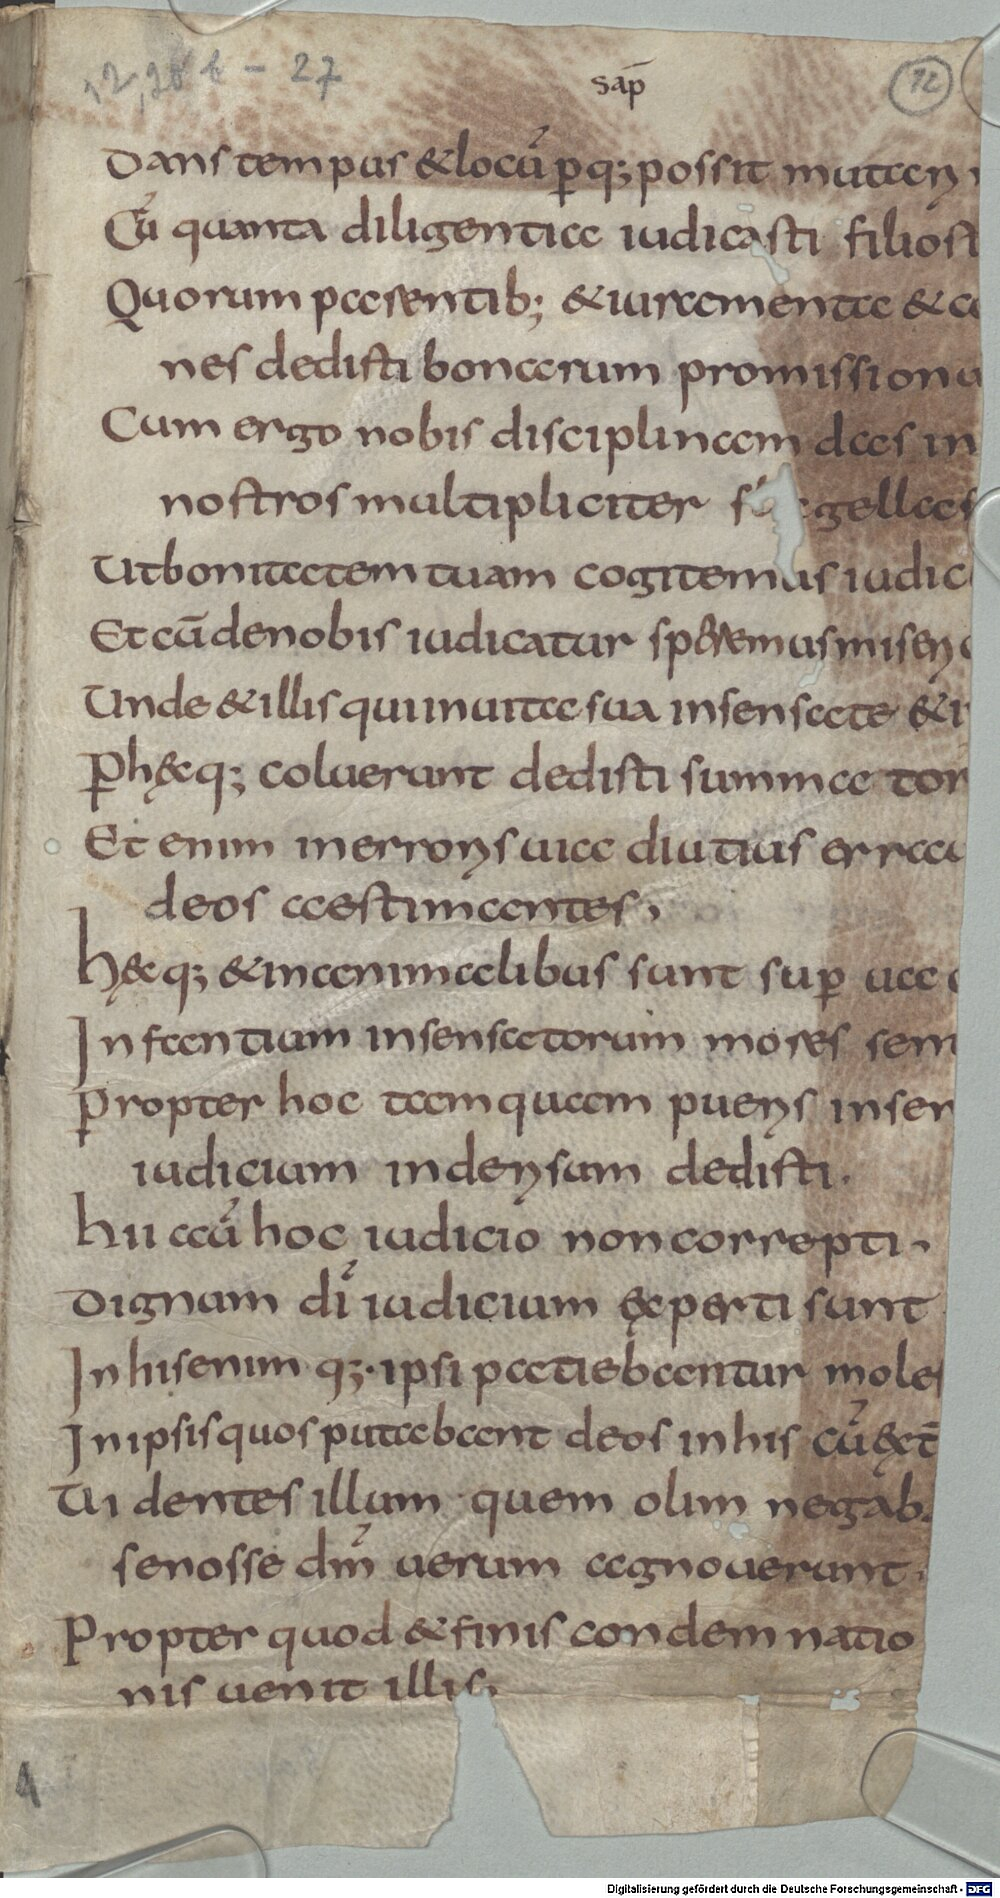 12,20b - 27
sap̄
12
Dans tempus & locū p̱ q; possit mutari
Cū quanta diligentia iudicasti filios t
Quorum parentib; & iuramenta & co
nes dedisti bonarum promissionu
Cum ergo nobis disciplinam das in
nostros multipliciter f gellas
Ut bonitatem tuam cogitemus iudic
Et cū de nobis iudicatur speremus miseri
Unde & illis qui in uita sua insensate & i
P̱ hæc q; coluerunt dedisti summa tor
Et enim in erroris uia diutius erra
deos aestimantes,
Hæc q; & in animalibus sunt sup̱ ua
Infantium insensatorum mores sem
Propter hoc tamquam pueris insen
iudicium in derisum dedisti.
Hii aū hoc iudicio non correpti,
Dignum dī iudicium experti sunt
In his enim q; ipsi patiebantur mole
In ipsis quos putabant deos in his cū ext̄
Uidentes illum quem olim negab.
se nosse dm̄ uerum agnouerunt.
Propter quod & finis condemnatio
nis uenit illis,
4
Digitalisierung gefördert durch die Deutsche Forschungsgemeinschaft - DFG